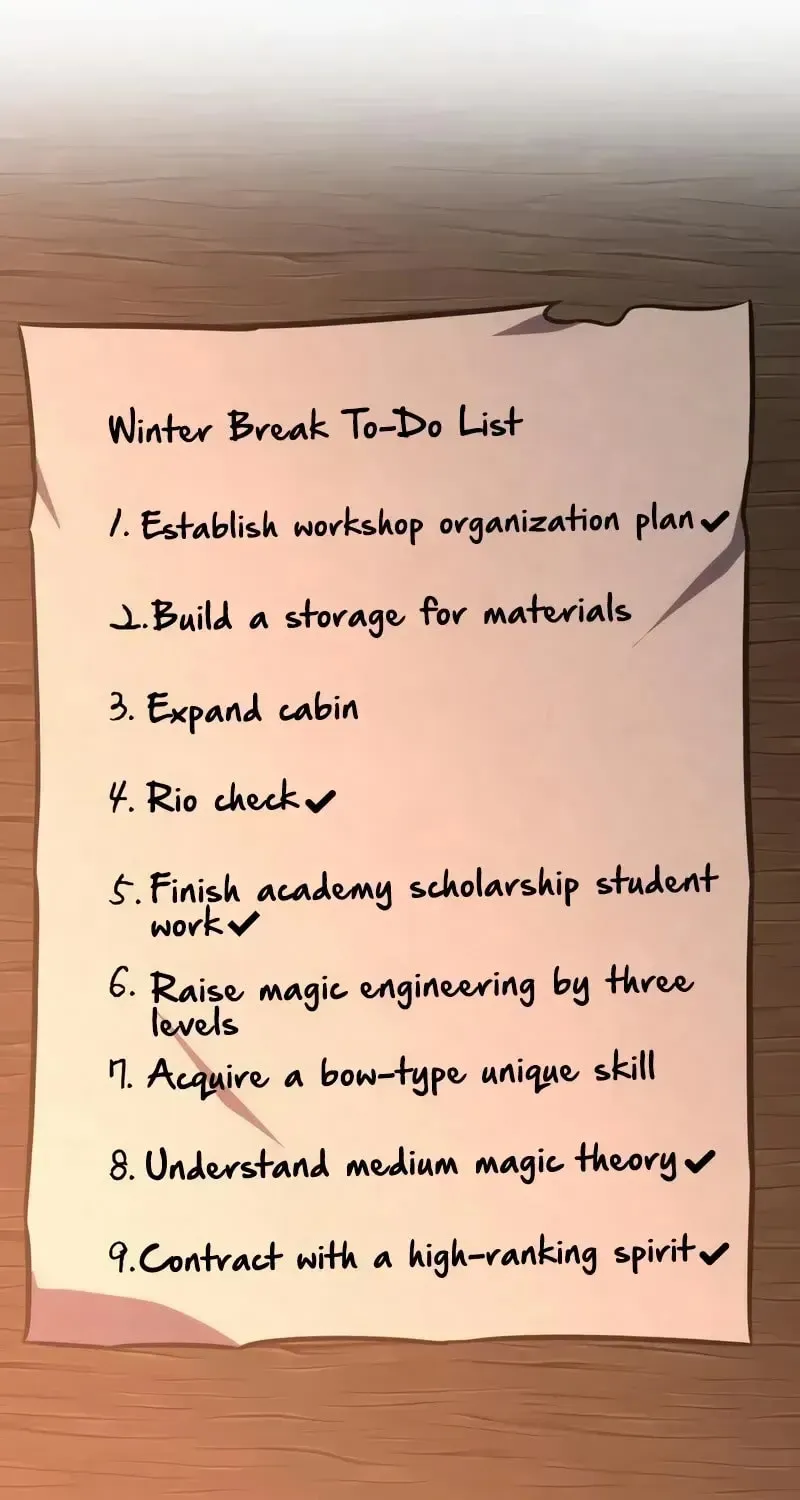 Winter Break To-Do List
1. Establish workshop organization plan✔
2. Build a storage for materials
3. Expand cabin
4. Rio check✔
5. Finish academy scholarship student
work✔
6. Raise magic engineering by three
levels
7. Acquire a bow-type unique skill
8. Understand medium magic theory✔
9. Contract with a high-ranking spirit✔